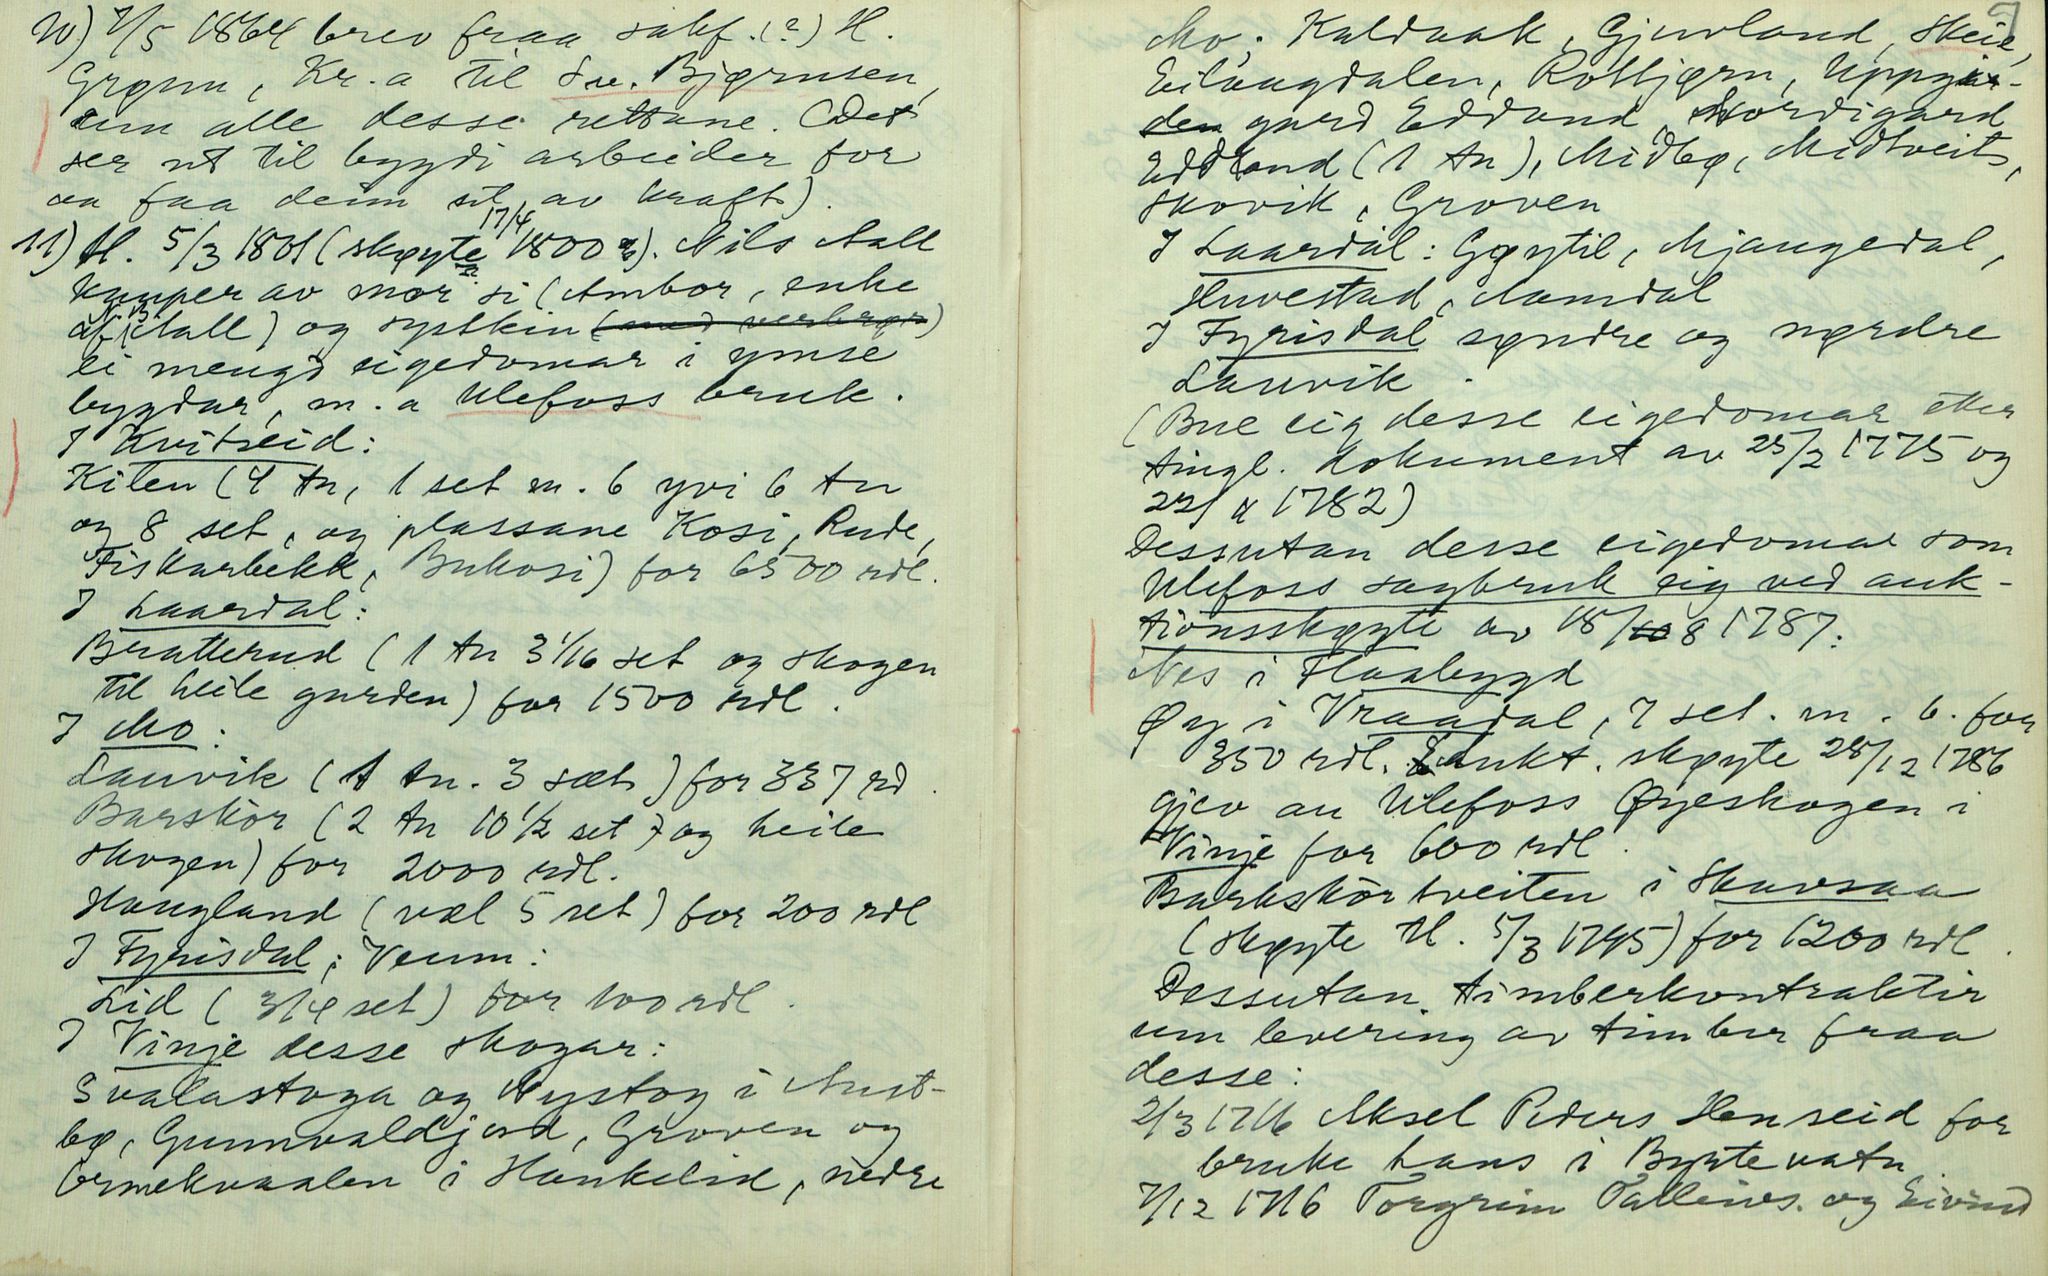 10) 7/5 1864 brev fraa sakf. (?) H.
Grønn, Kr.a til Sv. Bjørnsen,
um alle desse rettane. (Det
ser ut til bygdi arbeider for
aa faa deim sit av kraft).
11) tl. 5/3 1801 (skøyte 17/4 1800). Nils Aall
kauper av mor si (Ambor, enke
af N. Aall) og systkin
ei mengd eigedomar i ymse
bygdar, m.a Ulefoss bruk.
I Kvitseid:
Kilen (4 tn, 1 set m. 6 yvi 6 tn
og 8 set, og plassane Kosi, Rude,
Fiskarbekk, Bukosi) for 6500 rdl.
I Laardal:
Bratterud (1 tn 3 1/16 set og skogen
til heile garden) for 1500 rdl.
I Mo:
Lauvik (1 tn. 3 sæt) for 337 rd.
Barskor (2 tn 10 1/2 set) og heile
skogen) for 2000 rdl.
Haugland (væl 5 set) for 200 rdl
I Fyrisdal; Veum:
Lid (3/4 set) for 100 rdl.
I Vinje desse skogar:
Svalastoga og Nystog i Aust-
bø, Gunnvaldjord, Groven og
Ormekvaalen i Haukelid, nedre
7
Mo, Kaldaak, Gjuvland, Skeie,
Eilaugdalen, Rotbjørn, Uppgar-
den gard Edland Nordigard
Eddland (1 tn), Midbø, Midtveit,
Skovik, Groven
I Laardal: Gøytil, Mjaugedal,
Huvestad, Aamdal
I Fyrisdal søndre og nørdre
Lauvik.
(Bue eig desse eigedomar etter
tingl. dokument av 25/2 1775 og
22/4 1782)
Dessutan desse eigedomar som
Ulefoss sagbruk eig ved auk-
tionsskøyte av 18/8 1787:
Nes i Flaabygd
Øy i Vraadal, 7 set. m. 6. for
350 rdl. Aukt. skøyte 28/12 1786
gjev au Ulefoss Øyeskogen i
Vinje for 600 rdl.
Barkskortveiten i Skavsaa
(skøyte tl. 5/3 1795) for 1200 rdl.
Dessutan timberkontraktir
um levering av timber fraa
desse:
2/3 1716 Aksel Peders Henseid for
bruke hans i Byrtevatn.
7/12 1716 Torgrim Talleivs. og Eivind